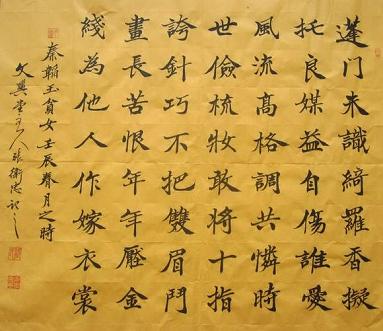 蓬門未識綺羅香擬
托良媒益自傷誰愛
風流高格調共憐時
世儉梳妝敢將十指
誇針巧不把雙眉鬥
畫長苦恨年年壓金
綫為他人作嫁衣裳
秦韜玉貧女壬辰春月之時
文興堂主人張衛忠記之